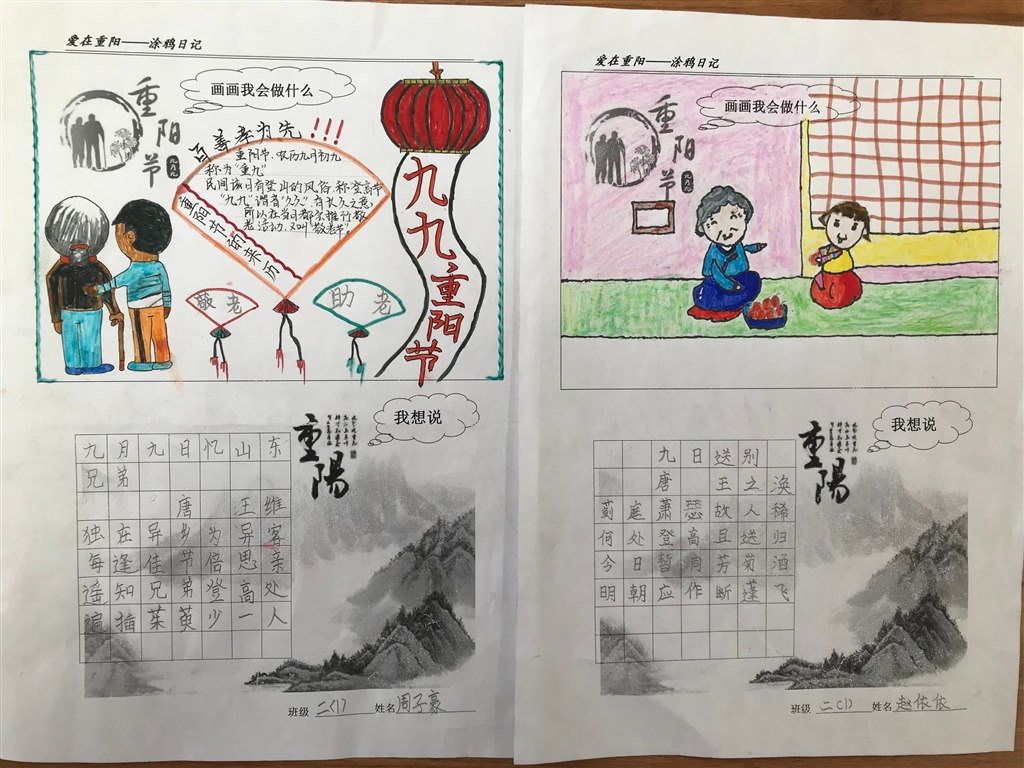 爱在重阳——涂鸦日记
画画我会做什么
重阳节
九九
百善孝为先!!!
重阳节,农历九月初九
称为"重九"
民间该日有登山的风俗,称登高节
"九九"谐音"久久",有长久之意,
所以在当日都会推行敬
老活动,又叫"敬老节"
重阳节的来历
敬老
助老
九九重阳节
我想说
重陽
九月九日忆山东
兄弟
唐 王维
独在异乡为异客
每逢佳节倍思亲
遥知兄弟登高处
遍插茱萸少一人
班级 二(1) 姓名 周子豪
爱在重阳——涂鸦日记
画画我会做什么
重阳节
九九
我想说
重陽
九日送别
唐 王之涣
蓟庭萧瑟故人稀
何处登高且送归
今日暂同芳菊酒
明朝应作断蓬飞
班级 二(1) 姓名 赵依依